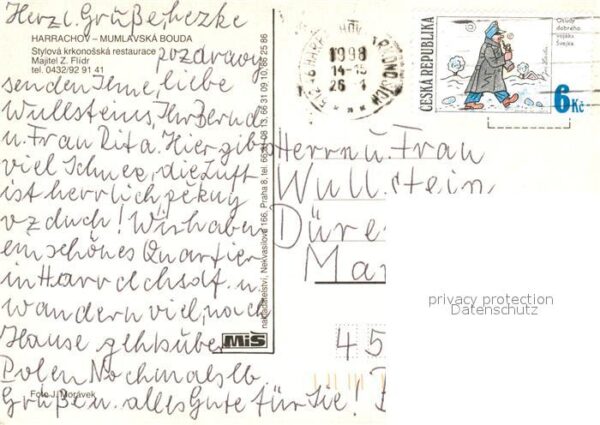 Herzl. Grüße, hezke
HARRACHOV – MUMLAVSKÁ BOUDA
Stylová krkonošská restaurace
Majitel Z. Flídr
tel. 0432/92 91 41
pozdravy
senden Ihne, liebe
Wullsteins, Ihr Bernd
u. Frau Rita. Hier gibs
viel Schnee, die Luft
ist herrlich, pěkný
vzduch! Wir haben
ein schönes Quartier
in Harrachsdf. u.
wandern viel, nach
Hause gehts über
Polen Nochmals lb
Grüße u. alles Gute für Sie!
Foto J. Morávek
nakladatelství, Nekvasilova 166, Praha 8, tel. 66 31 08 13, 66 31 09 10, 66 25 86
MiS
1998
14-15
26
ČESKÁ REPUBLIKA
Osudy
dobrého
vojáka
Švejka
6 Kč
Herrn u. Frau
Wullstein
Düre
Mar
45
privacy protection
Datenschutz